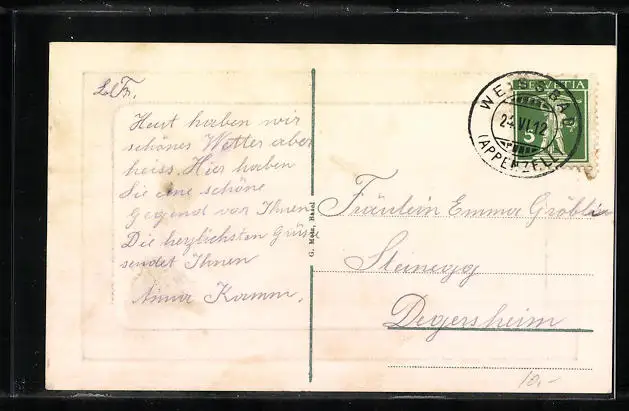 L. Fr.
Heut haben wir
schönes Wetter aber
heiss. Hier haben
Sie eine schöne
Gegend vor Ihnen
Die herzlichsten Grüsse
sendet Ihnen
Anna Kamm.
G. Metz, Basel
HELVETIA
5
WEISSBAD
24.VI.12
(APPENZELL)
Fräulein Emma Gröblin
Steinegg
Degersheim
10.-